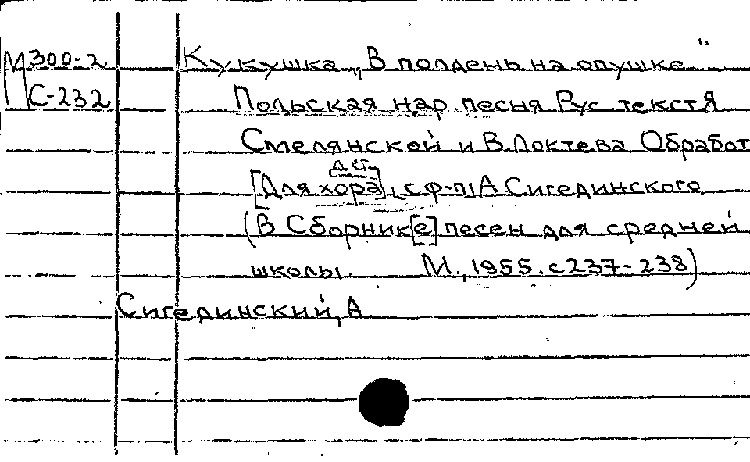 М300-2 Кукушка „В полдень на опушке"
С-232 Польская нар. песня Рус текст Я
Смелянской и В.Локтева Обработ
дет.
[Для хора], с ф-п А Сигединского
(В Сборник[е] песен для средней
школы. М., 1955. с 237-238)
Сигединский, А